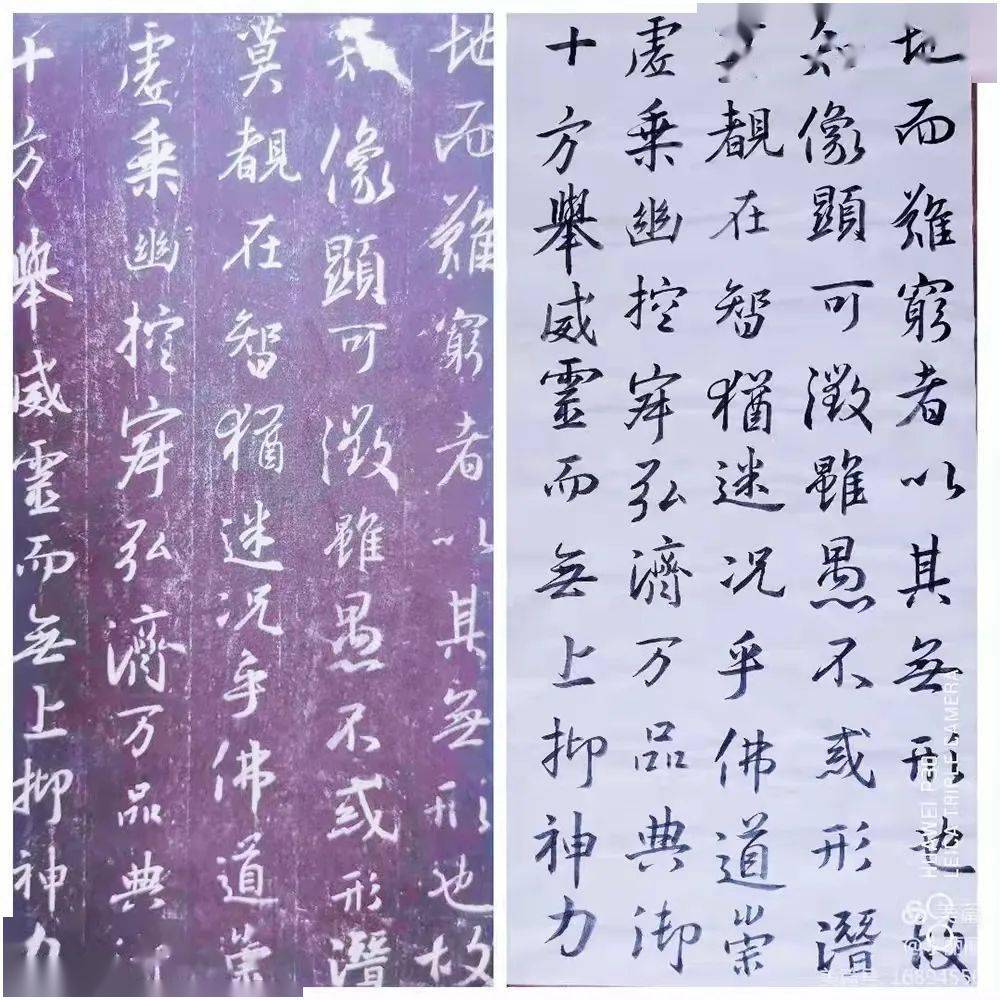 地而難窮者以其無形也故
像顯可徵雖愚不惑形潛
莫覩在智猶迷況乎佛道崇
虛乘幽控寂弘濟万品典
十方舉威靈而無上抑神力
地而難窮者以其無形也故
像顯可徵雖愚不惑形潛
覩在智猶迷況乎佛道崇
虛乘幽控寂弘濟万品典御
十方舉威靈而無上抑神力
HUAWEI P30
LEICA TRIPLE CAMERA